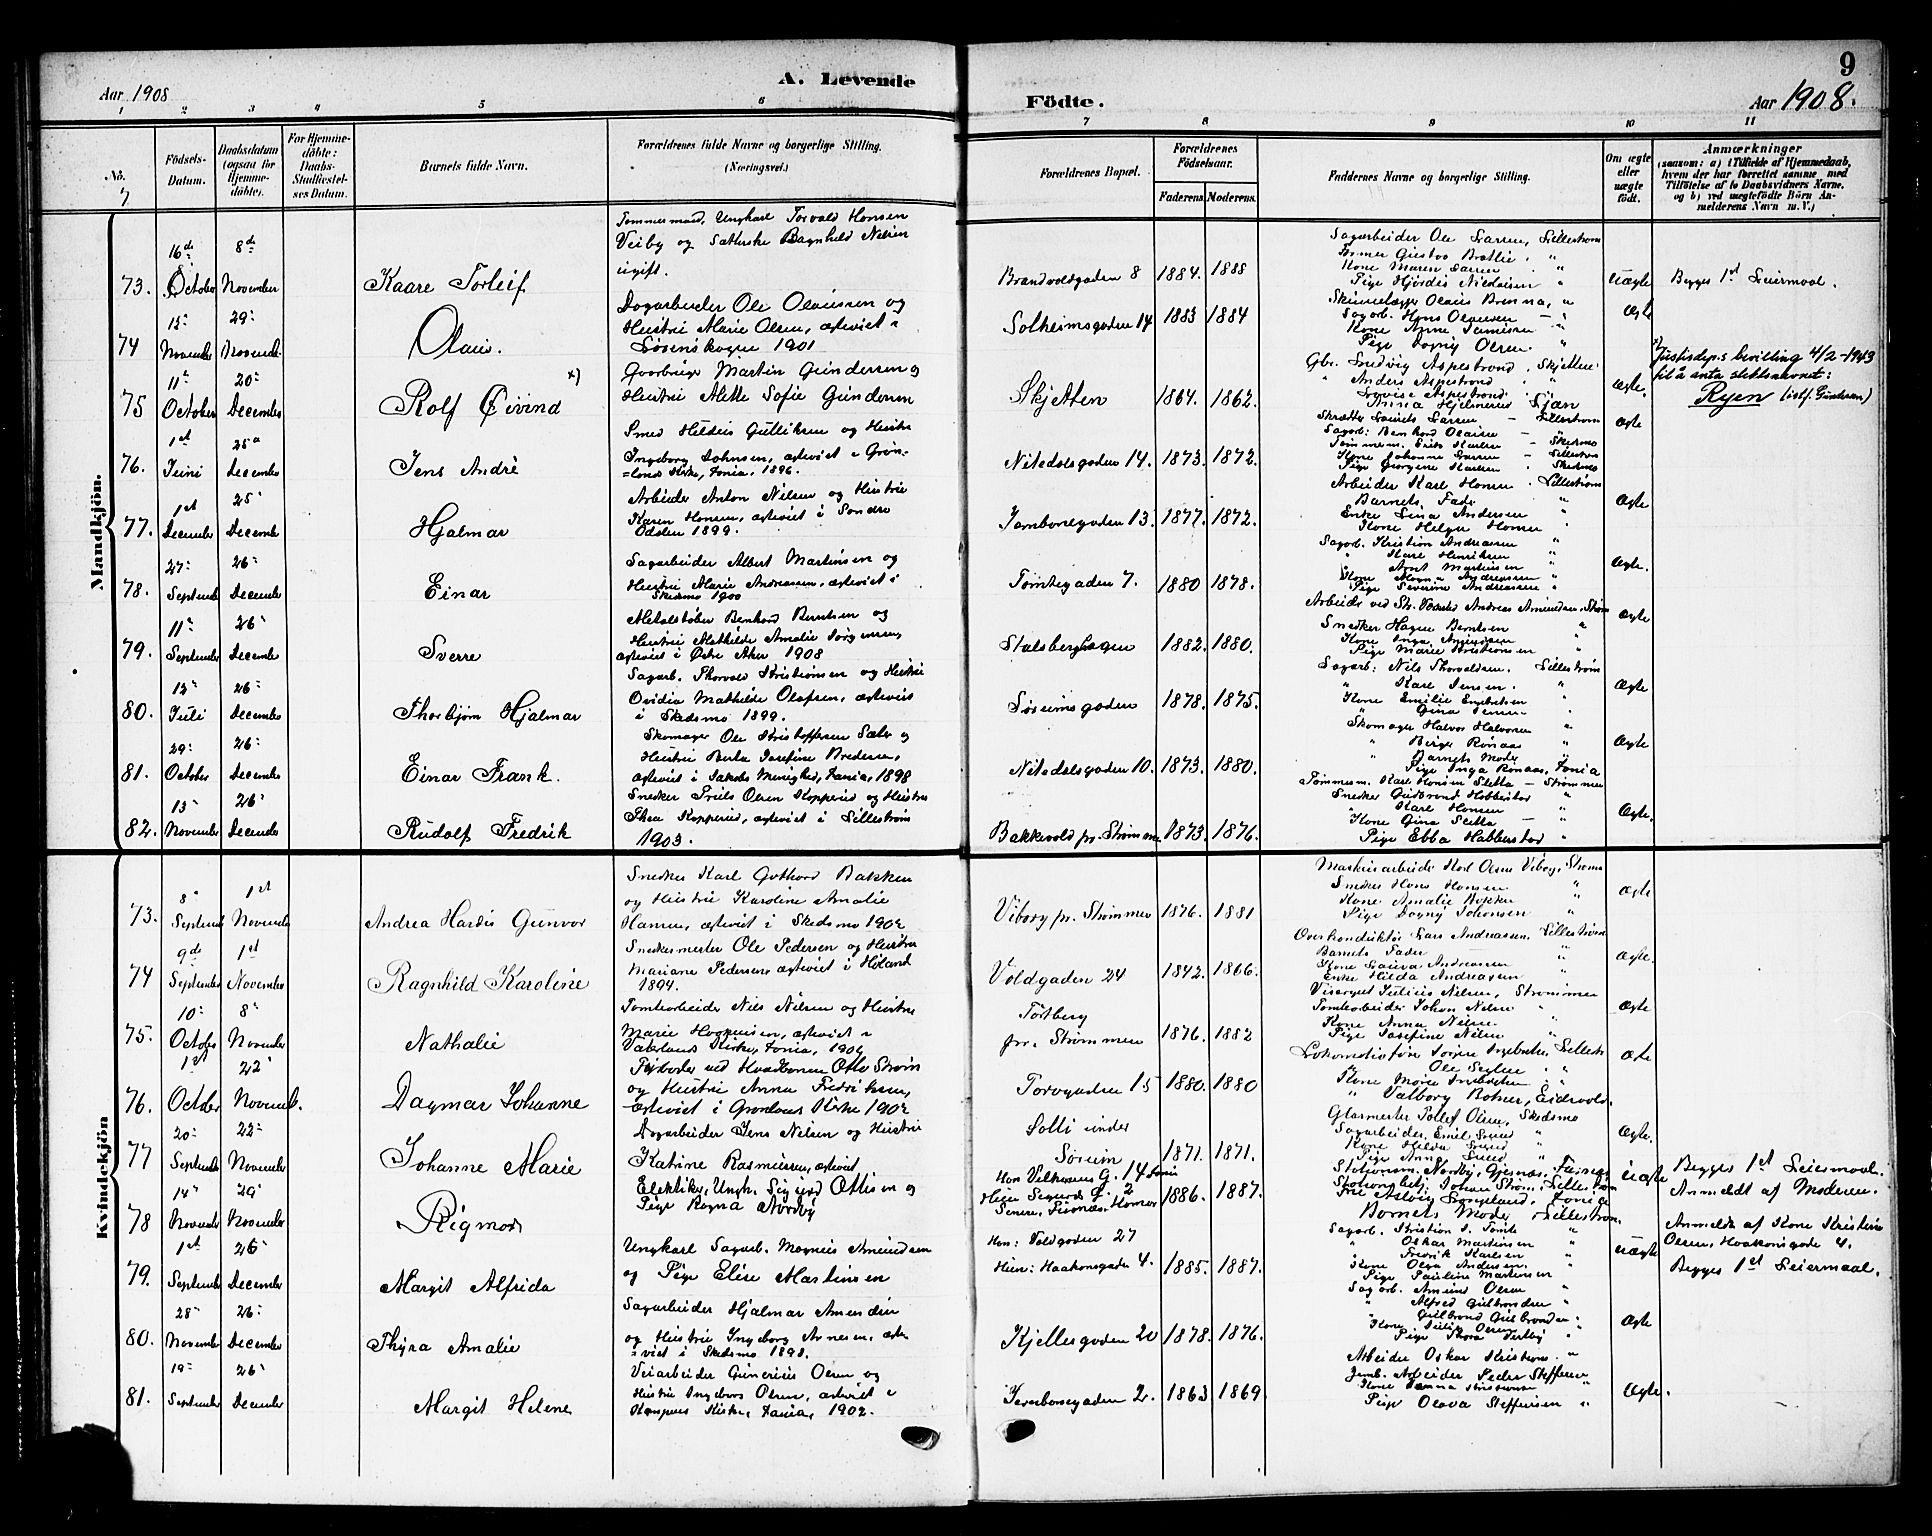 9
Aar 1908
A. Levende
Födte.
Aar 1908.
1 2 3 4 5 6 7 8 9 10 11
No.
Födsels-Datum.
Daabsdatum (ogsaa for Hjemme-döbte).
For Hjemme-döbte: Daabs-Stadfæstel-ses Datum.
Barnets fulde Navn.
Forældrenes fulde Navne og borgerlige Stilling. (Næringsvei.)
Forældrenes Bopæl.
Forældrenes Födselsaar.
Faderens. Moderens.
Faddernes Navne og borgerlige Stilling.
Om ægte eller uægte født.
Anmærkninger
(saasom: a) i Tilfælde af Hjemmedaab, hvem der har forrettet samme med Tilföielse af to Daabsvidners Navne, og b) ved uægtefödte Börn Anmelderens Navn m. V.)
Mandkjön.
73. 16de October 8de November
Kaare Torleif
Tommermand, Ungkarl Torvald Hansen
Veiby og
ugift.
Brandvoldgaden 8 1884. 1888
Sagarbeider Ole Larsen, Lillestrøm
Kone Maren Larsen "
Pige Hjördis Nicolaisen "
Uægte
Begges 1st Leiermaal.
74 15 November 29 November
Olaus.
Dagarbeider Ole Olaussen og
Hustru Marie Olsen, ægteviet i
1901
Solheimsgaden 14 1883 1884
Sagarb. Hans Olaussen
Pige Dagny Olsen. "
Ægte
75 11 October 20 December
Rolf Eivind x)
Gaardbruger Martin Gundersen og
Hustru Alette Sofie Gundersen
Skjetten 1864. 1862.
Gbr. Ludvig Aspestrand, Skjetten
" Anders Aspestrand "
Anna Hjelmerud
Ægte.
x) Justisdep.s bevilling 4/2-1943
til å anta slektsnavnet:
Ryen (istf. Gundersen)
76. 1st Juni 25 December
Jens André
Smed Hildeus Gulliksen og Hustru
Ingeborg Johnsen, ægteviet i Grøn-
=lands Kirke, Xania, 1896.
Nitedalsgaden 14. 1873. 1872.
Skrædder Laurits Larsen - Lillestrøm
Kone Johanne Larsen - Lillestrøm
Pige Georgine Karlsen - Skedsmo
Ægte
77. 1st December 25 December
Hjalmar
Arbeider Anton Nilsen og Hustru
Karen Hansen, ægteviet i Søndre
Odalen 1899.
Jernbanegaden 13. 1877. 1872.
Arbeider Karl Hansen Lillestrøm
Barnets Fader "
Enke Lina Andersen "
Kone Helga Hansen "
Ægte
78. 27 September 26 December
Einar
Sagarbeider Albert Martinsen og
Hustru Marie Andreassen, ægteviet i
Skedsmo 1900
Tomtegaden 7. 1880 1878.
Sagarb. Kristian Andreassen "
" Karl Henriksen "
Arnt Martinsen "
Pige Severine Andreassen "
Ægte.
79. 11 September 26 December
Sverre
Metalstøber Bernhard Berntsen og
Hustru Mathilde Amalie Jørgensen,
ægteviet i Østre Aker 1908
Stalsberghagen 1882. 1880.
Snedker Hagen Berntsen "
Kone Inga Amundsen
Pige Marie Kristiansen "
Ægte
80. 13 Juli 26 December
Thorbjørn Hjalmar
Sagarb. Thorvald Kristiansen og Hustru
Ovidia Mathilde Olafsen, ægteviet
i Skedsmo 1899.
Sørumsgaden 1878. 1875.
Sagarb: Nils Thorvaldsen. Lillestrøm
" Karl Jensen. "
Kone Emilie Engebretsen "
" Gina Jensen "
Ægte
81. 29 October 26 December
Einar Frank.
Skomager Ole Kristoffersen Sæbø og
Hustru Berta Josefine Bredesen,
ægteviet i Jakobs Menighed, Xania, 1898
Nitedalsgaden 10. 1873. 1880.
Skomager Halvor Halvorsen "
" Birger Rønaas "
Barnets Moder "
Pige Inga Rønaas, Xania
Ægte
82. 13 November 26 December
Rudolf Fredrik
Snedker Truls Olsen Kopperud og Hustru
Thea Kopperud, ægteviet i Lillestrøm
1903.
Bakkevold pr. Strømmen 1873. 1876.
Tømmerm. Karl Hansen Sletta - Strømmen
Snedker Gudbrand Hobbelstad "
" Karl Hansen "
Kone Gina Sletta - "
Pige Ebba Habbelstad "
Ægte.
Kvindekjön
73. 8 September 1st November
Andrea Hardis Gunvor
Snedker Karl Guthard Bakken
og Hustru Karoline Amalie
Hansen, ægteviet i Skedsmo 1902
Viborg pr. Strømmen 1876. 1881
Maskinarbeider Karl Olsen Viborg, Strømmen
Snedker Hans Hansen "
Kone Amalie "
Pige Dagny Johansen "
Ægte
74 9de September 1st November
Ragnhild Karoline
Snedkermester Ole Pedersen og Hustru
Mariane Pedersen, ægteviet i Høland
1894.
Voldgaden 24 1842. 1866.
Overkonduktør Lars Andreassen, Lillestrøm
Barnets Fader "
Kone Laura Andreassen "
Enke Hilda Andreasen "
Ægte.
75. 10 October 8 November
Nathalie
Tomtearbeider Nils Nilsen og Hustru
Marie Haagensen, ægteviet i
Vaterlands Kirke, Xania, 1906
Tortberg
pr. Strømmen 1876. 1882
Visergut Julius Nilsen, Strømmen
Tomtearbeider Johan Nilsen "
Kone Anna Nilsen "
Pige Josefine Nilsen "
Ægte
76. 1st October 22 November.
Dagmar Johanne
Fyrbøder ved Hovedbanen Otto Strøm
og Hustru Anna Fredriksen,
ægteviet i Grønlands Kirke 1902
Torvgaden 15 1880. 1880
Kone Marie Engebretsen "
" Valborg Bohner, Eidsvold.
Ægte
77 20 September 22 November
Johanne Marie
Dagarbeider Jens Nilsen og Hustru
Katrine Rasmussen, ægteviet
Solli under
Sørum 1871. 1871.
Glarmester Tollef Olsen, Skedsmo
Sagarbeider, Emil Lund "
Kone Hilda Lund "
Pige Anna Lund "
Ægte.
78 14 November 29 November
Rigmor
Elektriker, Ungk. Sigurd Ottesen og
Pige Ragna Nordby
Han Vetkerens G. 14 Xania
Hun Sigurds G. 2
1886. 1887.
Barnets Moder Lillestrøm.
Uægte
Begges 1st Leiermaal.
Anmeldt af Moderen.
79. 1st September 26 December
Margit Alfrida
Ungkarl Sagarb. Magnus Amundsen
og Pige Elise Martinsen
Han: Voldgaden 27
Hun: Haakonsgade 4. 1885. 1887.
Sagarb. Kristian T. Tomte "
" Oskar Martinsen "
" Fredrik Karlsen "
Kone Olga Andersen. "
Pige Pauline Martinsen "
Uægte
Anmeldt af Kone Kristine
Olsen, Haakonsgade 4.
Begges 1st Leiermaal.
80. 28 November 26 December
Thyra Amalie
Sagarbeider Hjalmar Amundsen
og Hustru Ingeborg Arnesen, ægte-
=viet i Skedsmo 1898.
Kjellergaden 20 1878. 1876.
Sagarb. Amund Olsen "
" Alfred Gulbrandsen "
" Gulbrand Gulbrandsen "
Ægte
81. 19 September 26 December
Margit Helene
Veiarbeider Gunerius Olsen og
Hustru Ingeborg Olsen, ægteviet i
Kampens Kirke, Xania, 1902.
Jernbanegaden 2. 1863 1869
Arbeider Oskar Kristians. "
Jernb. Arbeider Peder Steffensen
Pige Olava Steffensen "
Ægte.